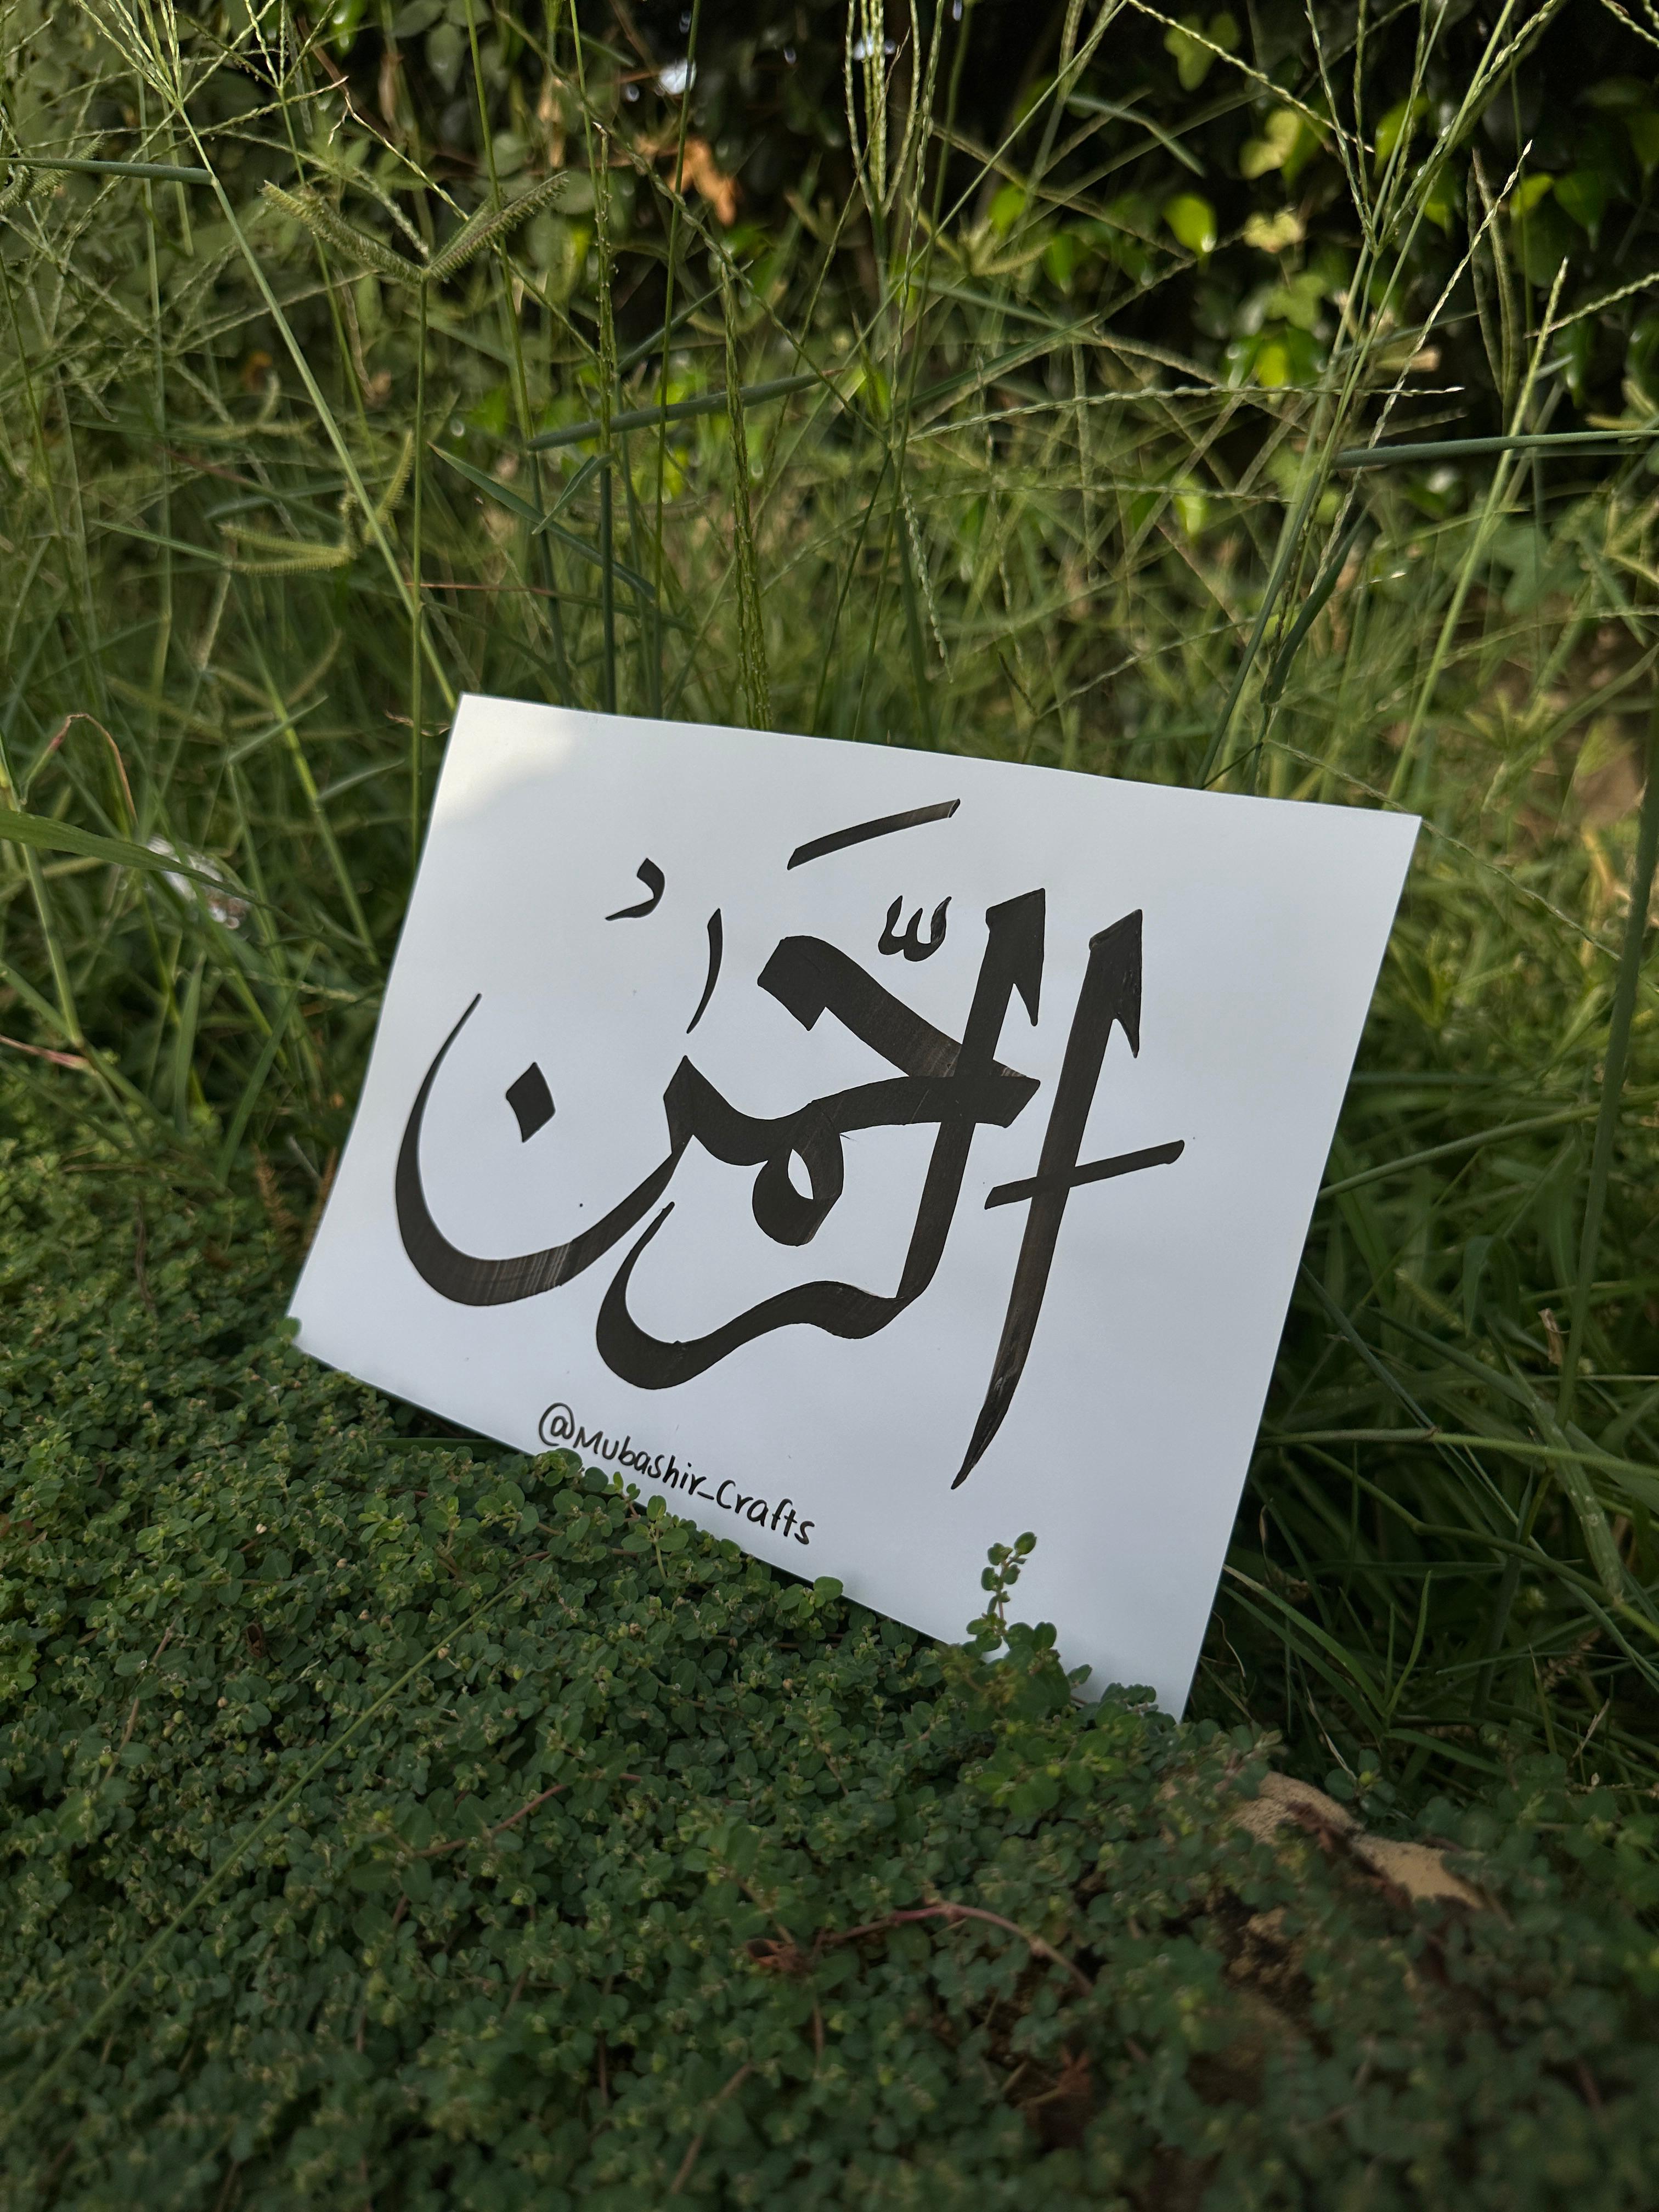 الرَّحْمٰنُ
@Mubashir_Crafts